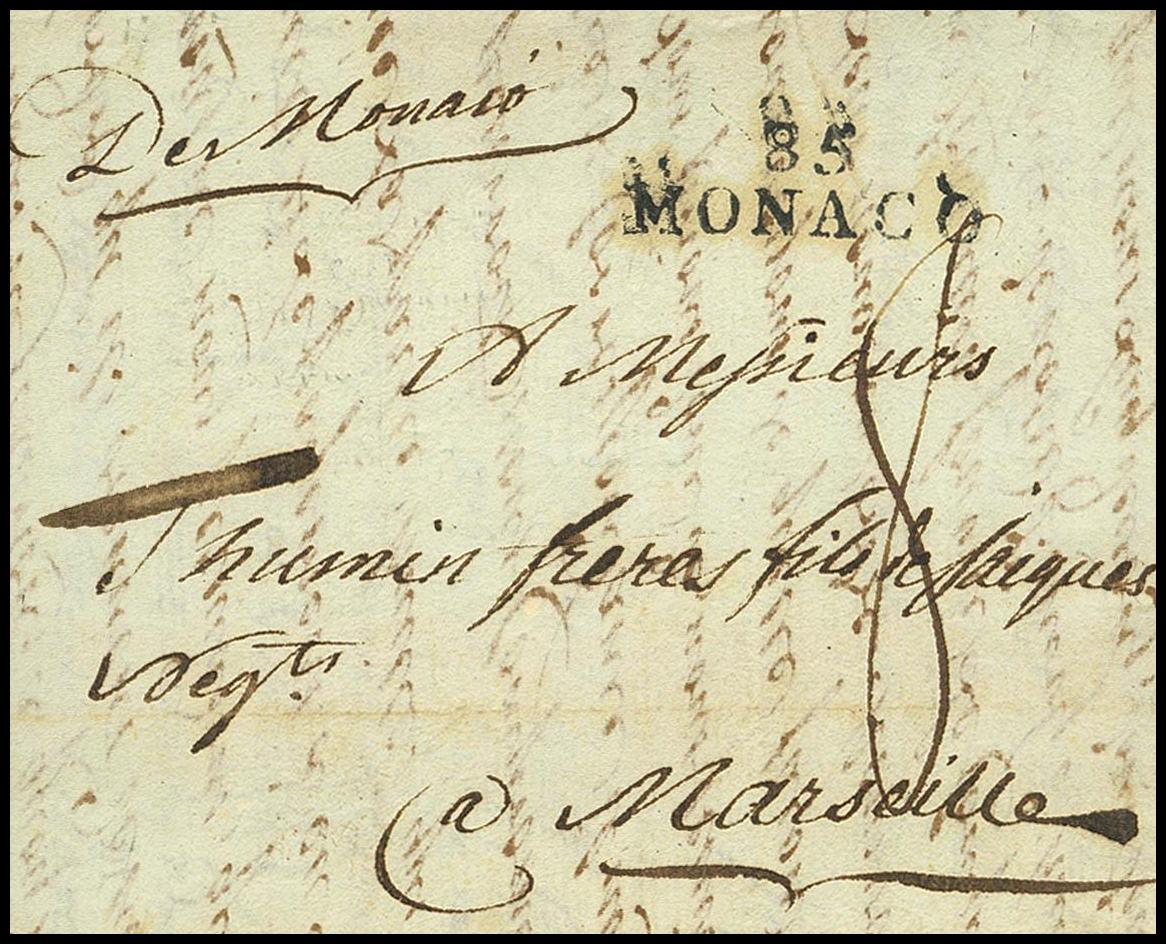 De Monaco
85
MONACO
A Messieurs
Thumin freres fils de
Negts
8
a Marseille